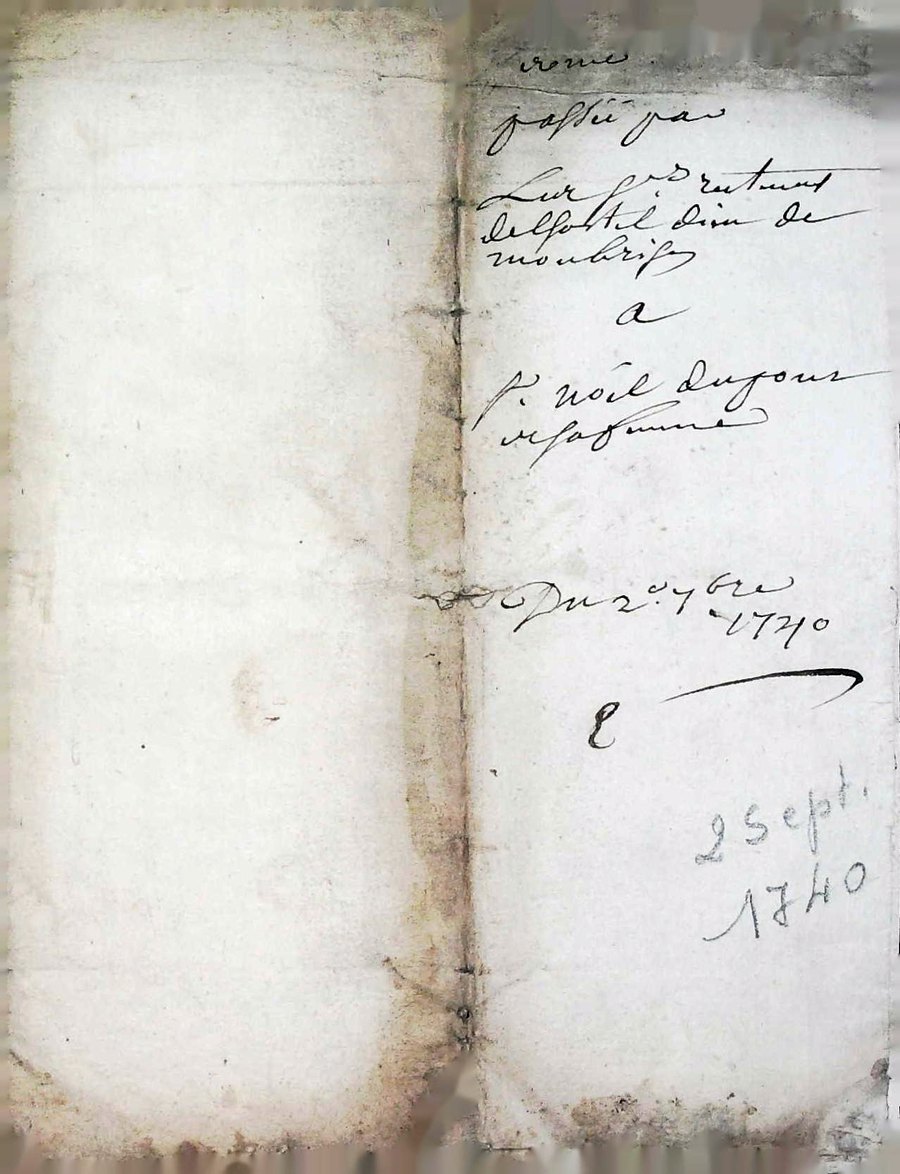 passée par
Les srs recteurs
de lhostel dieu de
monbrison
a
Sr. nóël dufour
et sa femme
Du 2e. 7bre
1740
2 Sept.
1740